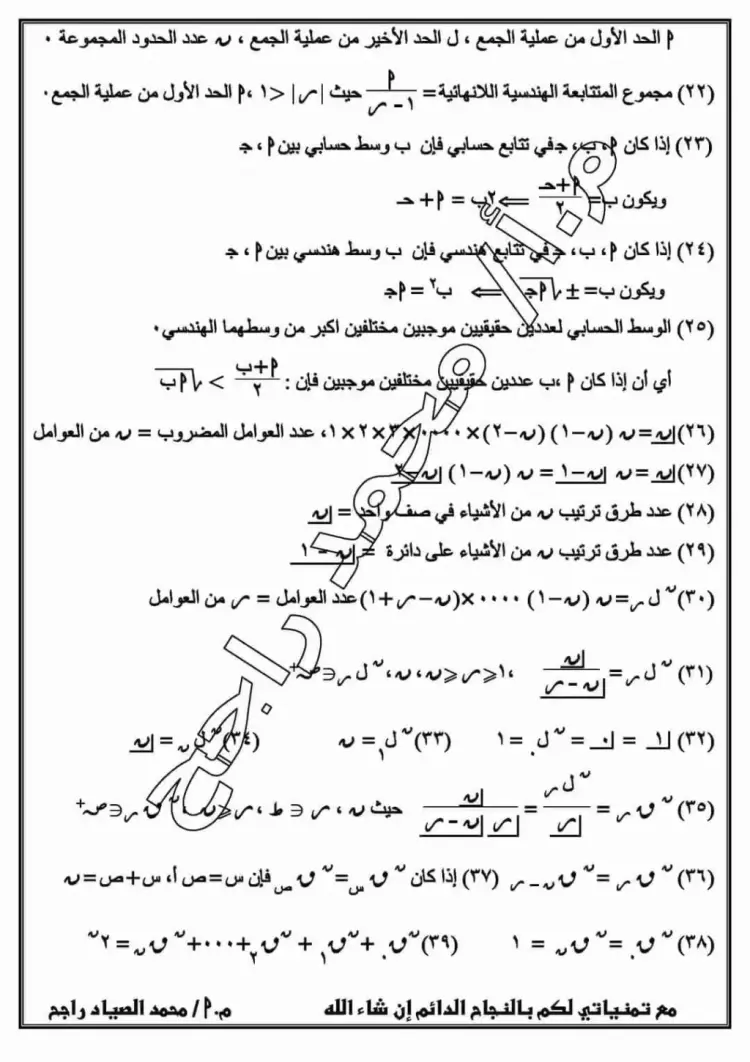 م الحد الأول من عملية الجمع ، ل الحد الأخير من عملية الجمع ، ن عدد الحدود المجموعة ٠
(٢٢) مجموع المتتابعة الهندسية اللانهائية= م/(١-ر) حيث |ر| <١ ،م الحد الأول من عملية الجمع٠
(٢٣) إذا كان م، ب، ج في تتابع حسابي فإن ب وسط حسابي بين م ، ج
ويكون ب= (م+حـ)/٢ ⇐ ٢ب = م + حـ
(٢٤) إذا كان م ، ب ، ج في تتابع هندسي فإن ب وسط هندسي بين م ، ج
ويكون ب= ± √(م ج) ⇐ ب² = م ج
(٢٥) الوسط الحسابي لعددين حقيقيين موجبين مختلفين اكبر من وسطهما الهندسي٠
أي أن إذا كان م ،ب عددين حقيقيين مختلفين موجبين فإن : (م+ب)/٢ > √(م ب)
(٢٦) |ن =ن (ن–١) (ن–٢)×٠٠٠٠×٣×٢×١، عدد العوامل المضروب = ن من العوامل
(٢٧) |ن =ن |ن–١ = ن (ن–١) |ن–٢
(٢٨) عدد طرق ترتيب ن من الأشياء في صف واحد = |ن
(٢٩) عدد طرق ترتيب ن من الأشياء على دائرة = |ن – ١
(٣٠) ⁿل ر =ن (ن–١) ٠٠٠٠×(ن–ر+١) عدد العوامل = ر من العوامل
(٣١) ⁿل ر = |ن / |ن – ر ، ١≤ر≤ن ،ن، ⁿل ر∋ص⁺
(٣٢) |١ = |٠ = ⁿل٠ = ١ (٣٣) ⁿل١ = ن (٣٤) ⁿل ن = |ن
(٣٥) ⁿق ر = ⁿل ر / |ر = |ن / |ر |ن – ر حيث ن ، ر ∋ ط ، ر≤ن ، ⁿق ر∋ص⁺
(٣٦) ⁿق ر = ⁿق ن–ر (٣٧) إذا كان ⁿق س = ⁿق ص فإن س=ص أ، س+ص=ن
(٣٨) ⁿق٠ = ⁿق ن = ١ (٣٩) ⁿق٠ + ⁿق١ + ⁿق٢ +٠٠٠+ ⁿق ن = ٢ⁿ
مع تمنياتي لكم بالنجاح الدائم إن شاء الله م.م / محمد الصياد راجح